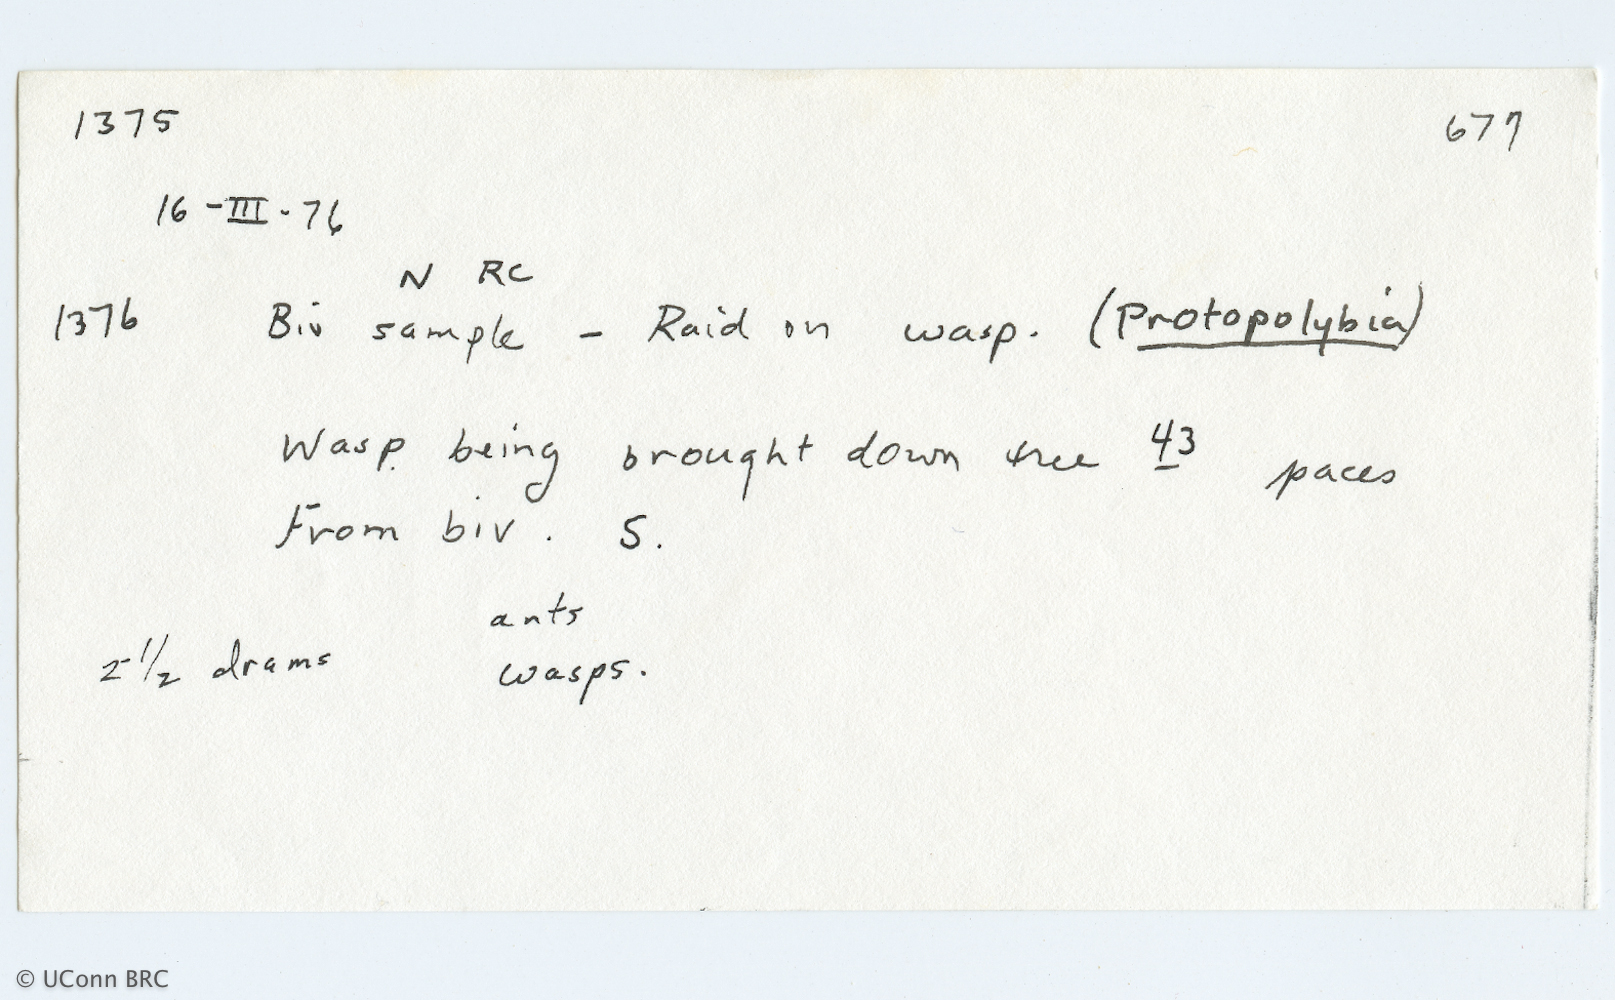 1375 677
16-III-76
N RC
1376 Biv sample - Raid on wasp. (Protopolybia)
Wasp being brought down tree 43 paces
From biv. S.
ants
2 1/2 drams wasps.
© UConn BRC